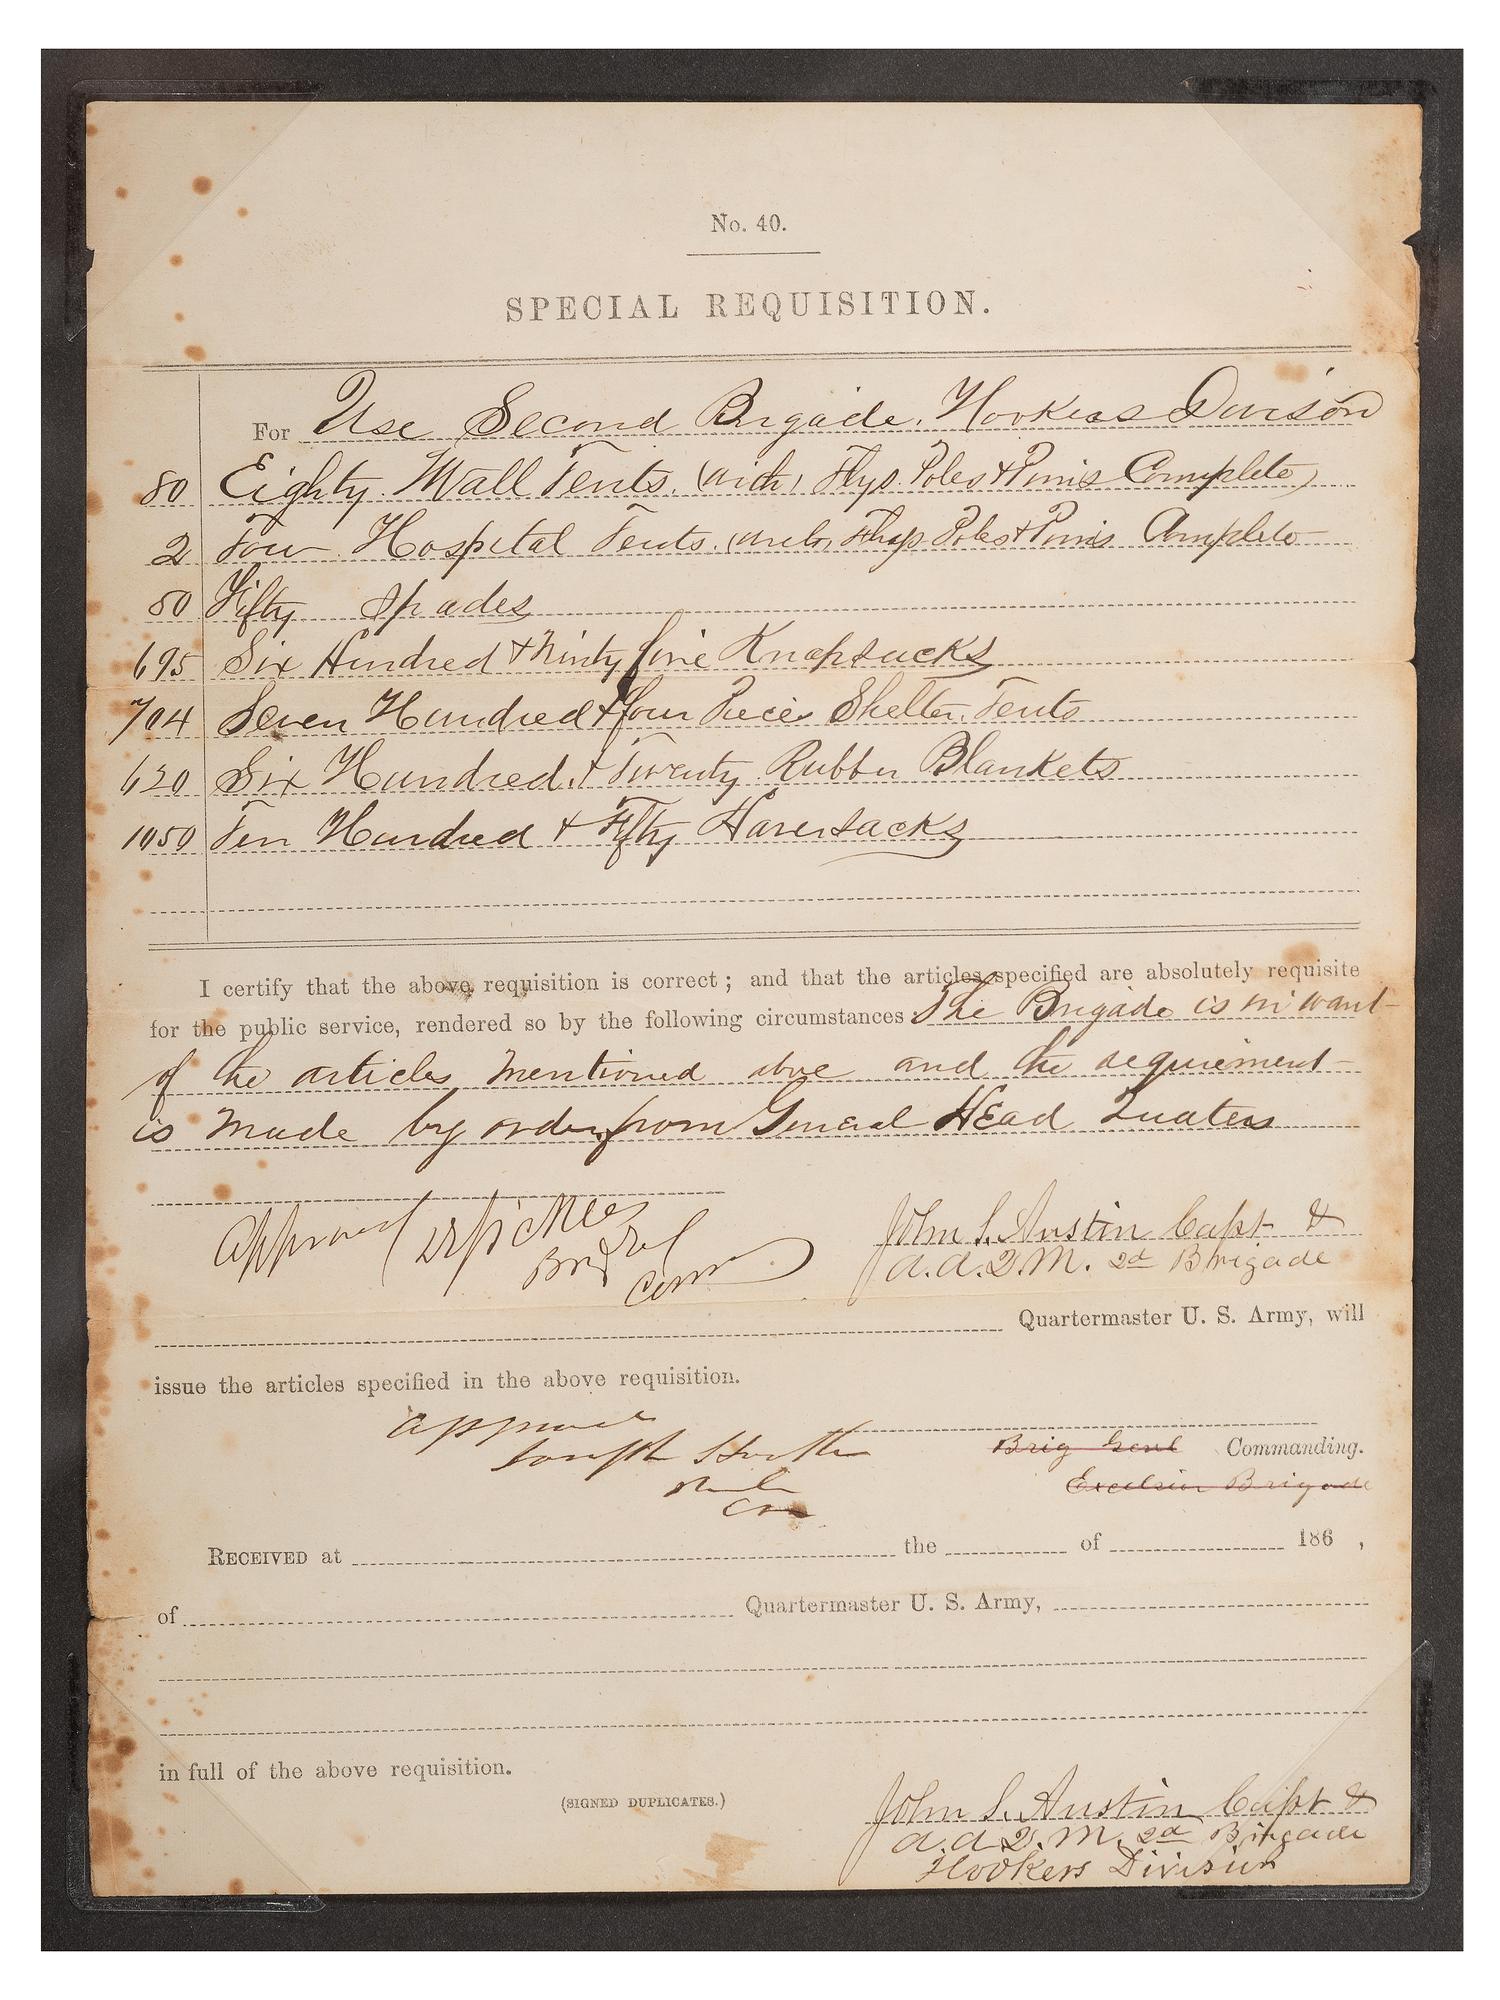 No. 40.
SPECIAL REQUISITION.
For Use Second Brigade. Hookers Division
80 Eighty Wall Tents. (with) Flys. Poles & Pinis Complete)
2 Four Hospital Tents. (with) Flys. Poles & Pinis Complete
50 Fifty Spades
695 Six Hundred & Ninty five Knapsacks
704 Seven Hundred & four Piece Shelter. Tents
620 Six Hundred. & Twenty Rubber Blankets
1050 Ten Hundred & Fifty Haversacks
I certify that the above requisition is correct; and that the articles specified are absolutely requisite
for the public service, rendered so by the following circumstances The Brigade is in want
of the articles mentioned above and the requirement
is made by order from General Head Quaters
Approved D E Sickles
Brig Gel
Com
John S. Austin Capt &
A. A. Q. M. 2d Brigade
Quartermaster U. S. Army, will
issue the articles specified in the above requisition.
approved
Joseph Hooker
Brig Genl Commanding.
Excelsior Brigade
RECEIVED at the of 186 ,
of Quartermaster U. S. Army,
in full of the above requisition.
(SIGNED DUPLICATES.)
John S. Austin Capt &
A. A Q. M. 2d Brigade
Hookers Division